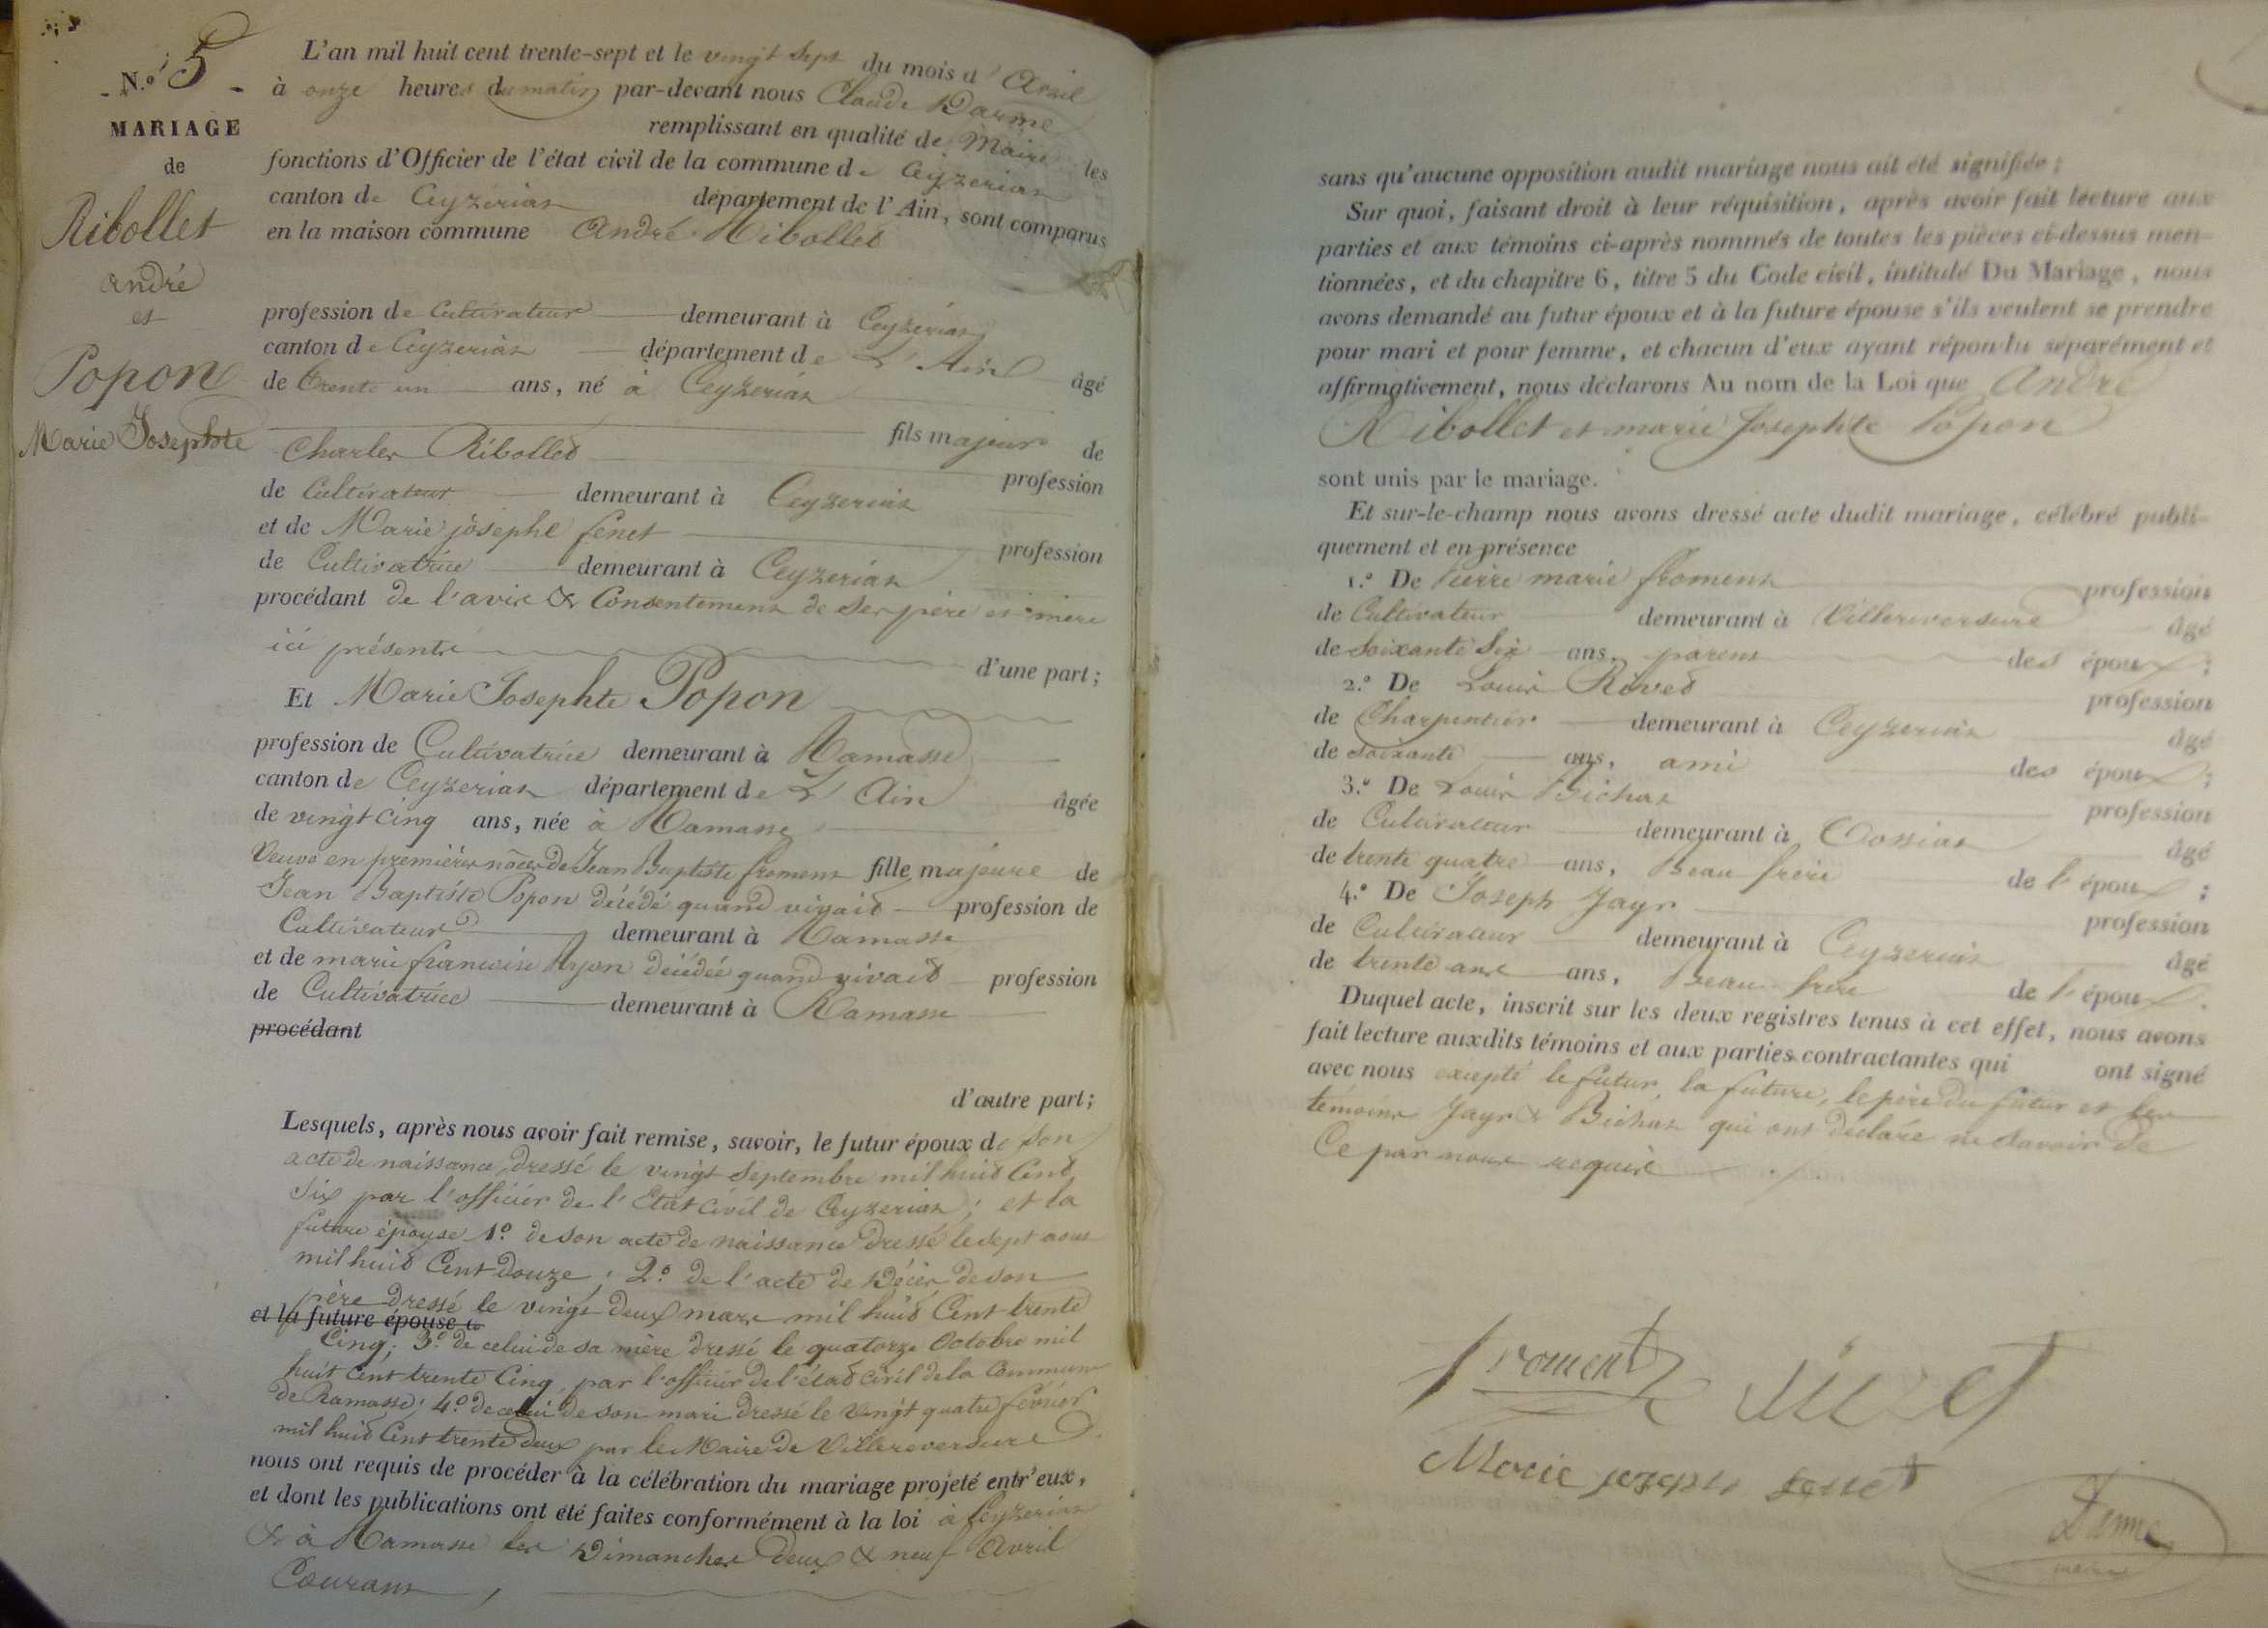 N.º 5
MARIAGE
de
Ribollet
André
et
Popon
Marie Josephte
L'an mil huit cent trente-sept et le vingt sept du mois d'Avril
à onze heures du matin par-devant nous Claude Darme
remplissant en qualité de Maire les
fonctions d'Officier de l'état civil de la commune de Ceyzeriat
canton de Ceyzériat département de l'Ain, sont comparus
en la maison commune André Ribollet
profession de Cultivateur demeurant à Ceyzériat
canton de Ceyzeriat département de L'Ain âgé
de trente un ans, né à Ceyzériat
fils majeur de
Charles Ribollet profession
de Cultivateur demeurant à Ceyzeriat
et de Marie josephe fenet profession
de Cultivatrice demeurant à Ceyzeriat
procédant de l'avis & Consentement de ses père et mère
ici présents d'une part;
Et Marie Josephte Popon
profession de Cultivatrice demeurant à Ramasse
canton de Ceyzeriat département de L'Ain âgée
de vingt cinq ans, née à Ramasse
Veuve en premières noces de Jean Baptiste froment fille majeure de
Jean Baptiste Popon décédé quand vivait profession de
Cultivateur demeurant à Ramasse
et de marie francoise décédée quand vivait profession
de Cultivatrice demeurant à Ramasse
procédant
d'autre part;
Lesquels, après nous avoir fait remise, savoir, le futur époux de son
acte de naissance, dressé le vingt Septembre mil huit Cent
Six par l'officier de l'Etat Civil de Ceyzeriat; et la
future épouse 1.º de son acte de naissance dressé le sept aout
mil huit Cent Douze; 2.º de l'acte de Décès de son
père dressé le vingt deux mars mil huit Cent trente
et la future épouse
Cinq; 3.º de celui de sa mère dressé le quatorze Octobre mil
huit Cent trente Cinq, par l'officier de l'état Civil de la Commune
de Ramasse; 4.º de celui de son mari dressé le Vingt quatre février
mil huit Cent trente deux par le Maire de Villereversure
nous ont requis de procéder à la célébration du mariage projeté entr'eux,
et dont les publications ont été faites conformément à la loi à Ceyzeriat
& à Ramasse les Dimanches Deux & neuf Avril
Courant,
sans qu'aucune opposition audit mariage nous ait été signifiée;
Sur quoi, faisant droit à leur réquisition, après avoir fait lecture aux
parties et aux témoins ci-après nommés de toutes les pièces ci-dessus men-
tionnées, et du chapitre 6, titre 5 du Code civil, intitulé Du Mariage, nous
avons demandé au futur époux et à la future épouse s'ils veulent se prendre
pour mari et pour femme, et chacun d'eux ayant répondu séparément et
affirmativement, nous déclarons Au nom de la Loi que André
Ribollet et marie Josephte Popon
sont unis par le mariage.
Et sur-le-champ nous avons dressé acte dudit mariage, célébré publi-
quement et en présence
1.º De Pierre marie froment profession
de Cultivateur demeurant à Villereversure âgé
de soixante Six ans, parent des époux;
2.º De Louis profession
de Charpentier demeurant à Ceyzeriat âgé
de soixante ans, ami des époux;
3.º De Louis Bichat profession
de Cultivateur demeurant à Tossiat âgé
de trente quatre ans, Beau frère de l'époux;
4.º De Joseph Jayr profession
de Cultivateur demeurant à Ceyzeriat âgé
de trente ans, Beau frère de l'époux.
Duquel acte, inscrit sur les deux registres tenus à cet effet, nous avons
fait lecture auxdits témoins et aux parties contractantes qui ont signé
avec nous excepté le futur, la future, le père du futur et les
témoins Jayr & Bichat qui ont déclaré ne savoir de
Ce par nous requis
froment
Marie jozeph fenet
Darme
maire